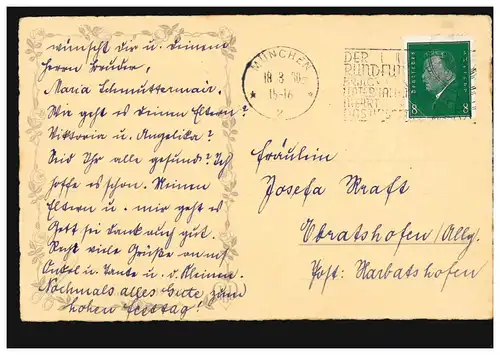 wünscht dir u. deinem
Herrn Bruder,
Maria Schmuttermair.
Wie geht es deinen Eltern?
Viktoria u. Angelika?
Seid Ihr alle gesund? Ich
hoffe es schon. Meinen
Eltern u. mir geht es
Gott sei Dank auch gut.
Recht viele Grüße an auf
Onkel u. Tante u. d. Kleinen.
Nochmals alles Gute zum
hohen Festtag!
MÜNCHEN
18 3 30
15-16
* 2 *
DER
RUNDFUNK
Deutsches Reich
8 8
Fräulein
Josefa Kraft
Ebratshofen/Allg.
Post: Harbatshofen